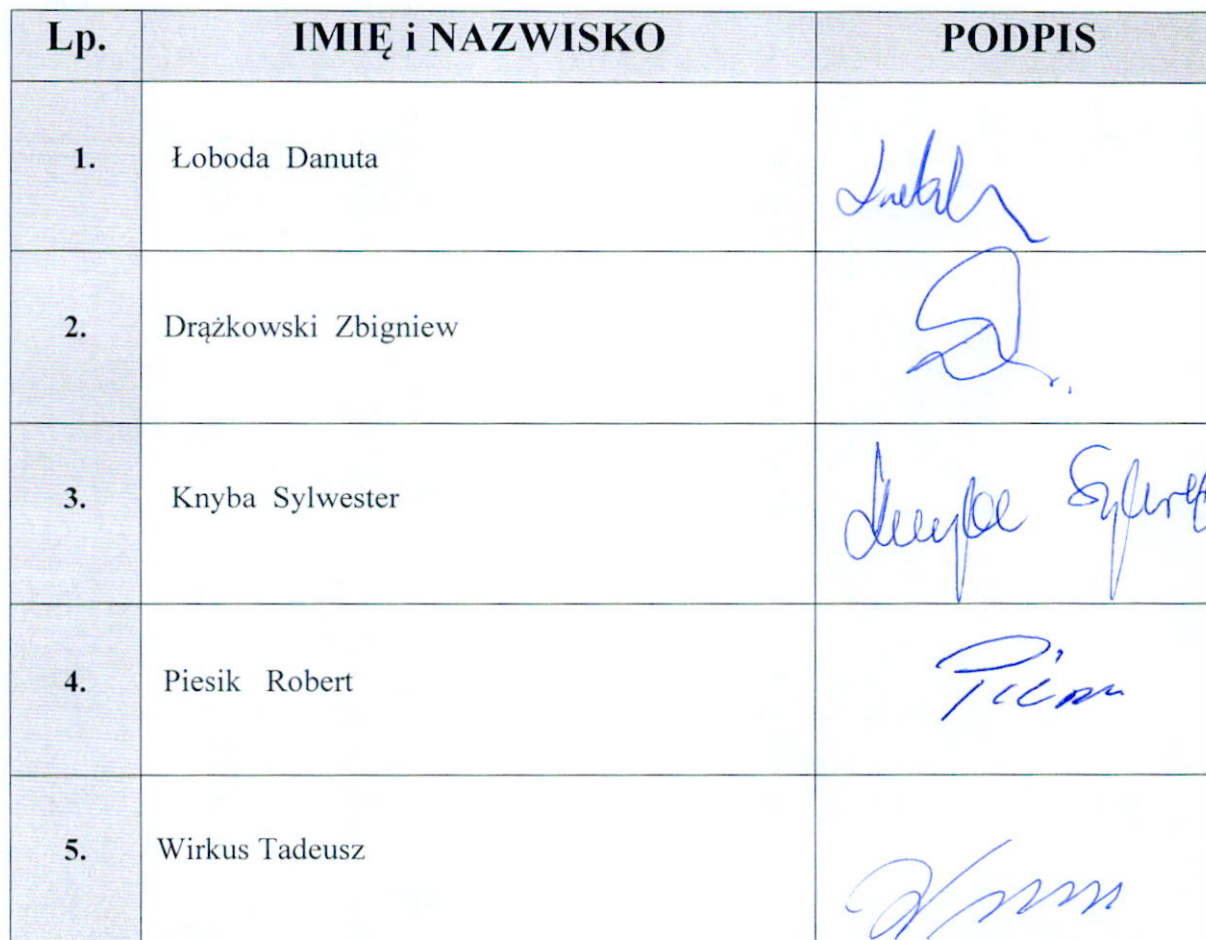 Lp. IMIĘ i NAZWISKO PODPIS
1. Łoboda Danuta
2. Drążkowski Zbigniew
3. Knyba Sylwester
4. Piesik Robert
5. Wirkus Tadeusz